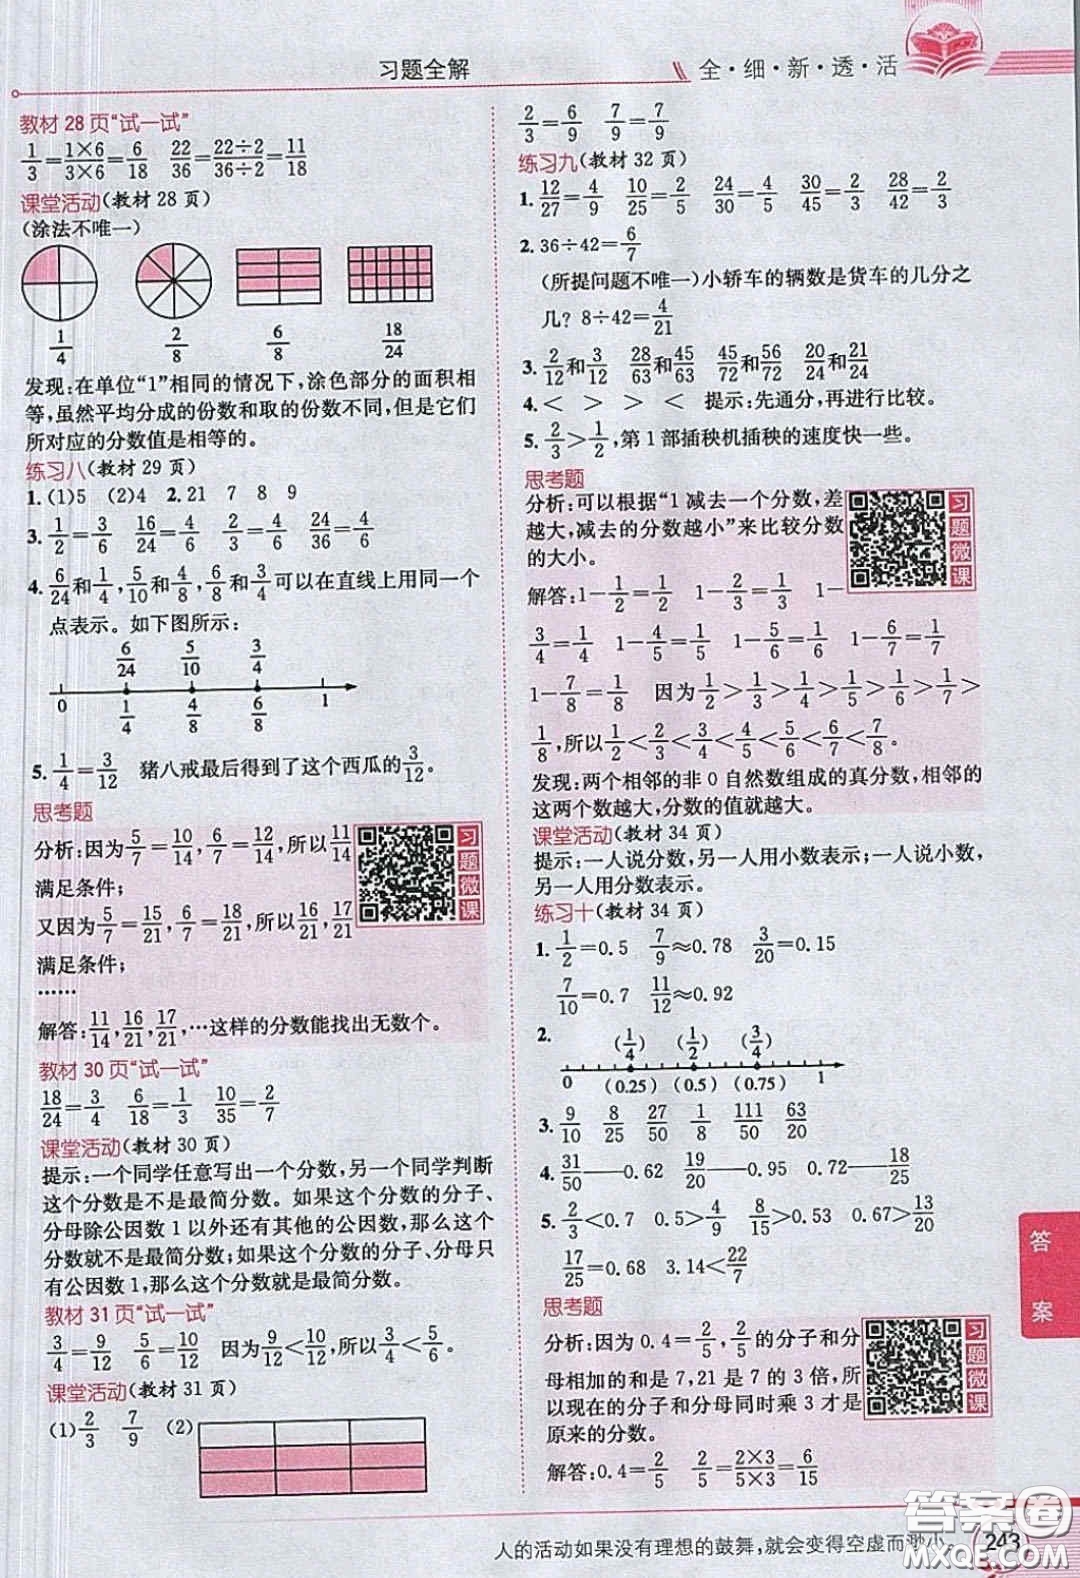 习题全解
全·细·新·透·活
教材 28 页“试一试”
1/3=1×6/3×6=6/18 22/36=22÷2/36÷2=11/18
课堂活动(教材 28 页)
(涂法不唯一)
1/4 2/8 6/8 18/24
发现:在单位“1”相同的情况下,涂色部分的面积相
等,虽然平均分成的份数和取的份数不同,但是它们
所对应的分数值是相等的。
练习八(教材 29 页)
1. (1)5 (2)4 2. 21 7 8 9
3. 1/2=3/6 16/24=4/6 2/3=4/6 24/36=4/6
4. 6/24和1/4,5/10和4/8,6/8和3/4可以在直线上用同一个
点表示。如下图所示:
6/24 5/10 3/4
0 1/4 4/8 6/8 1
5. 1/4=3/12 猪八戒最后得到了这个西瓜的3/12。
思考题
分析:因为5/7=10/14,6/7=12/14,所以11/14
满足条件;
又因为5/7=15/21,6/7=18/21,所以16/21,17/21
满足条件;
……
解答:11/14,16/21,17/21,…这样的分数能找出无数个。
习题微课
教材 30 页“试一试”
18/24=3/4 6/18=1/3 10/35=2/7
课堂活动(教材 30 页)
提示:一个同学任意写出一个分数,另一个同学判断
这个分数是不是最简分数。如果这个分数的分子、
分母除公因数 1 以外还有其他的公因数,那么这个
分数就不是最简分数;如果这个分数的分子、分母只
有公因数 1,那么这个分数就是最简分数。
教材 31 页“试一试”
3/4=9/12 5/6=10/12 因为9/12<10/12,所以3/4<5/6。
课堂活动(教材 31 页)
(1)2/3 7/9 (2)
2/3=6/9 7/9=7/9
练习九(教材 32 页)
1. 12/27=4/9 10/25=2/5 24/30=4/5 30/45=2/3 28/42=2/3
2. 36÷42=6/7
(所提问题不唯一)小轿车的辆数是货车的几分之
几? 8÷42=4/21
3. 2/12和3/12 28/63和45/63 45/72和56/72 20/24和21/24
4. < > > < 提示:先通分,再进行比较。
5. 2/3>1/2,第 1 部插秧机插秧的速度快一些。
思考题
分析:可以根据“1 减去一个分数,差
越大,减去的分数越小”来比较分数
的大小。
解答:1-1/2=1/2 1-2/3=1/3 1-
3/4=1/4 1-4/5=1/5 1-5/6=1/6 1-6/7=1/7
1-7/8=1/8 因为1/2>1/3>1/4>1/5>1/6>1/7>
1/8,所以1/2<2/3<3/4<4/5<5/6<6/7<7/8。
发现:两个相邻的非 0 自然数组成的真分数,相邻的
这两个数越大,分数的值就越大。
习题微课
课堂活动(教材 34 页)
提示:一人说分数,另一人用小数表示;一人说小数,
另一人用分数表示。
练习十(教材 34 页)
1. 1/2=0.5 7/9≈0.78 3/20=0.15
7/10=0.7 11/12≈0.92
2. (1/4) (1/2) (3/4)
0 (0.25) (0.5) (0.75) 1
3. 9/10 8/25 27/50 1/8 111/50 63/20
4. 31/50——0.62 19/20——0.95 0.72——18/25
5. 2/3<0.7 0.5>4/9 8/15>0.53 0.67>13/20
17/25=0.68 3.14<22/7
思考题
分析:因为 0.4=2/5,2/5的分子和分
母相加的和是 7,21 是 7 的 3 倍,所
以现在的分子和分母同时乘 3 才是
原来的分数。
解答:0.4=2/5 2/5=2×3/5×3=6/15
习题微课
答案
人的活动如果没有理想的鼓舞,就会变得空虚而渺小。
243
答案圈
MXQE.COM